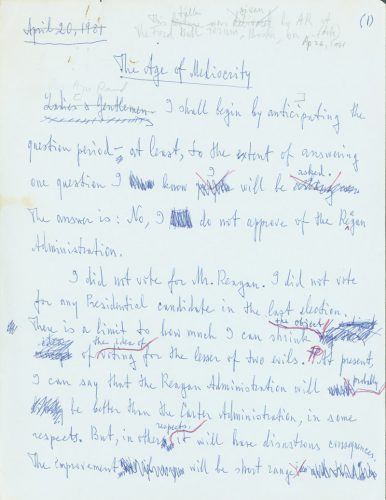 April 20, 1981
This talk was given by AR at
the Ford Hall Forum, Boston, on
Apr 26, 1981
(1)
The Age of Mediocrity
Ladies & Gentlemen. I shall begin by anticipating the
question period – at least, to the extent of answering
one question I know I will be asked.
The answer is: No, I do not approve of the Reagan
Administration.
I did not vote for Mr. Reagan. I did not vote
for any Presidential candidate in the last election.
There is a limit to how much I can shrink the object
of the idea of voting for the lesser of two evils. At present,
I can say that the Reagan Administration will probably
be better than the Carter Administration, in some
respects. But, in other respects, it will have disastrous consequences.
The improvement will be short range